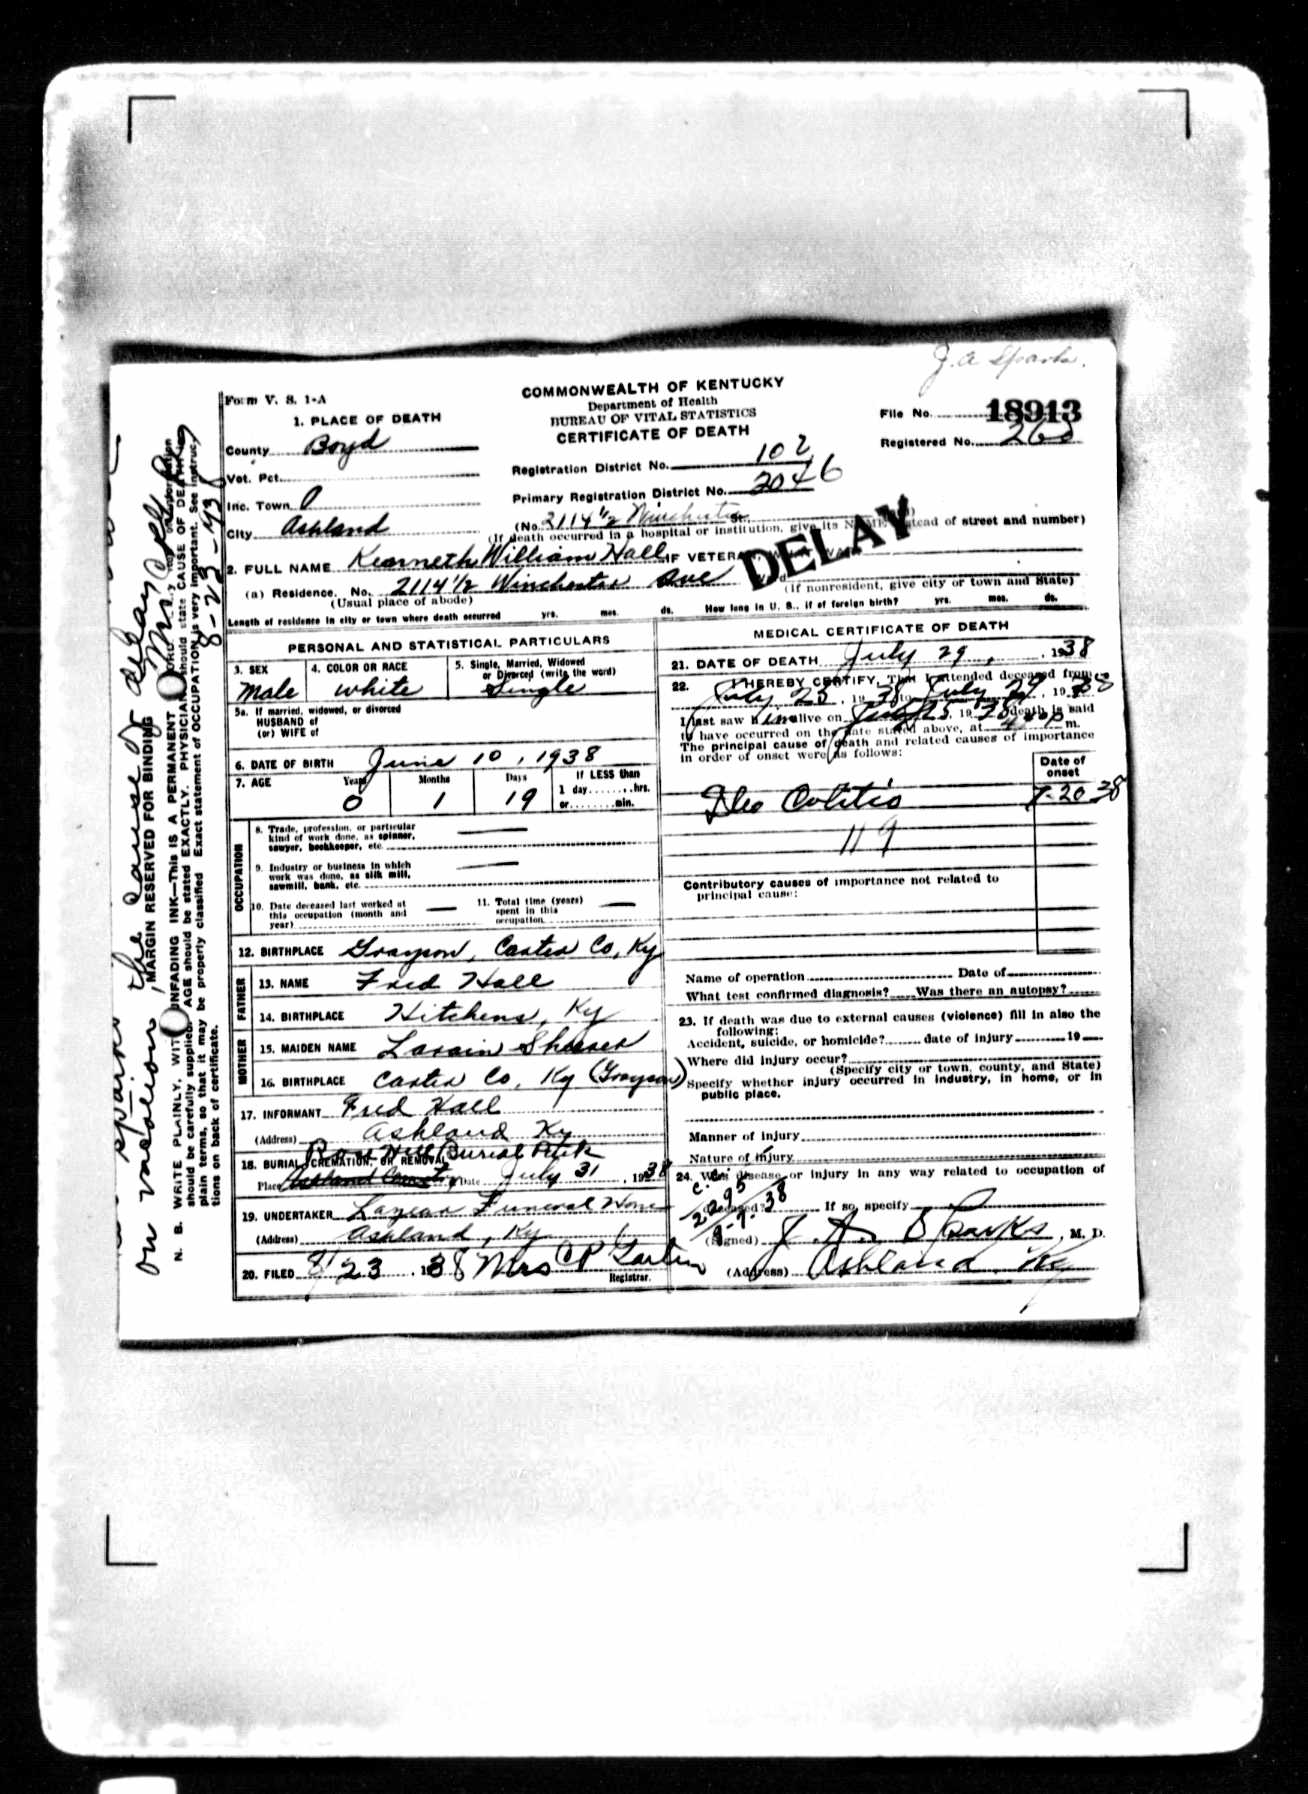 J. A. Sparks.
Form V. S. 1-A
COMMONWEALTH OF KENTUCKY
Department of Health
BUREAU OF VITAL STATISTICS
CERTIFICATE OF DEATH
File No. 18913
Registered No. 268
1. PLACE OF DEATH
County Boyd
Vot. Pct.
Inc. Town
City Ashland
Registration District No. 102
Primary Registration District No. 2046
(No. 2114 1/2 Winchester St.
(If death occurred in a hospital or institution, give its NAME instead of street and number)
DELAY
2. FULL NAME Kenneth William Hall IF VETERAN, WHAT WAR
(a) Residence. No. 2114 1/2 Winchester Ave Ward
(Usual place of abode)
(If nonresident, give city or town and State)
Length of residence in city or town where death occurred yrs. mos. ds. How long in U. S., if of foreign birth? yrs. mos. ds.
PERSONAL AND STATISTICAL PARTICULARS
3. SEX Male
4. COLOR OR RACE white
5. Single, Married, Widowed or Divorced (write the word) Single
5a. If married, widowed, or divorced
HUSBAND of
(or) WIFE of
6. DATE OF BIRTH June 10, 1938
7. AGE Years 0 Months 1 Days 19 If LESS than
1 day......hrs.
or........min.
OCCUPATION
8. Trade, profession, or particular
kind of work done, as spinner,
sawyer, bookkeeper, etc.
9. Industry or business in which
work was done, as silk mill,
sawmill, bank, etc.
10. Date deceased last worked at
this occupation (month and
year)
11. Total time (years)
spent in this
occupation
12. BIRTHPLACE Grayson, Carter Co, Ky
FATHER
13. NAME Fred Hall
14. BIRTHPLACE Hitchens, Ky
MOTHER
15. MAIDEN NAME Larain
16. BIRTHPLACE Carter Co, Ky (Grayson)
17. INFORMANT Fred Hall
(Address) Ashland Ky
18. BURIAL, CREMATION, OR REMOVAL Rose Hill Burial Park
Place Ashland Cemetery Date July 31, 1938
19. UNDERTAKER Lazear Funeral Home
(Address) Ashland, Ky
20. FILED 8/23, 1938 Mrs C P
Registrar.
MEDICAL CERTIFICATE OF DEATH
21. DATE OF DEATH July 29, 1938
22. I HEREBY CERTIFY, That I attended deceased from
July 25, 1938 to July 29, 1938
I last saw him alive on July 25, 1938 death is said
to have occurred on the date stated above, at m.
The principal cause of death and related causes of importance
in order of onset were as follows:
Date of
onset
Ileo Colitis 7-20-38
119
Contributory causes of importance not related to
principal cause:
Name of operation Date of
What test confirmed diagnosis? Was there an autopsy?
23. If death was due to external causes (violence) fill in also the
following:
Accident, suicide, or homicide? date of injury 19
Where did injury occur?
(Specify city or town, county, and State)
Specify whether injury occurred in industry, in home, or in
public place.
Manner of injury
Nature of injury
24. Was disease or injury in any way related to occupation of
deceased? If so, specify
2295
9-9-38
(Signed) J. A. Sparks, M. D.
(Address) Ashland Ky
on vacation, the cause of delay
8-23-38
MARGIN RESERVED FOR BINDING
N. B. WRITE PLAINLY, WITH UNFADING INK—THIS IS A PERMANENT RECORD.
should be carefully supplied. AGE should be stated EXACTLY. PHYSICIANS should state CAUSE OF DEATH in
plain terms, so that it may be properly classified. Exact statement of OCCUPATION is very important. See instruc-
tions on back of certificate.